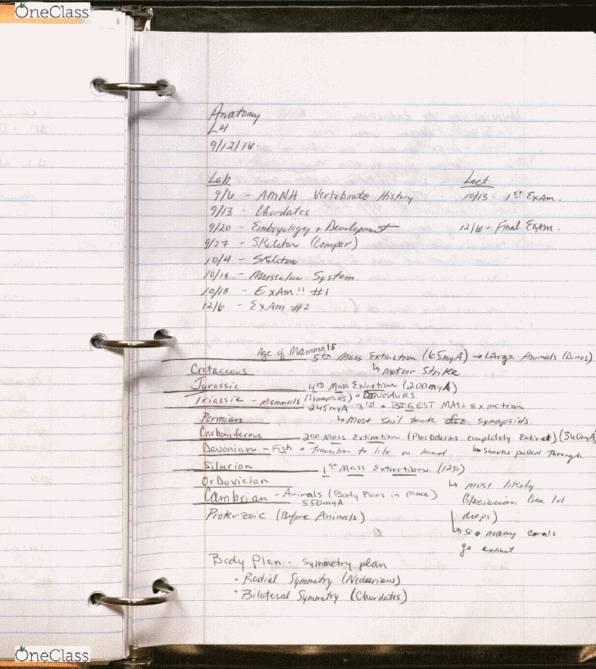 OneClass
Anatomy
L4
9/12/16
Lab
Lect
9/6 - AMNH Vertebrate History
10/13 - 1st Exam.
9/13 - Chordates
9/20 - Embryology + Development
12/16 - Final Exam.
9/27 - Skeleton (Compar)
10/4 - Skeleton
10/18 - Muscular System
10/18 - ExAm!! #1
12/6 - ExAm #2
Age of Mammals
5th Mass Extinction (65myA) → Large Animals (Dinos)
Cretaceous
↳ Meteor Strike
Jurassic
4th Mass Extinction (200myA)
Triassic - Mammals + DINOSAURS
245myA 3rd + BIGEST MASS Extinction
Permian
↳ Most Soil took synapsids.
Carboniferus
2nd Mass Extinction (Placoderms completely Extinct) (360myA)
Devonian - Fish + Transition to life on land
↳ Sharks pulled through
Silurian
1st Mass Extinction (12%)
OrDovician
↳ most likely
Cambrian - Animals (Body Plans in place)
550myA
(Glaciacion Sea lvl
drops)
Proterzoic (Before Animals)
↳ so many corals
go extinct
Body Plan - symmetry plan
• Radial Symmetry
• Bilateral Symmetry (Chordates)
OneClass